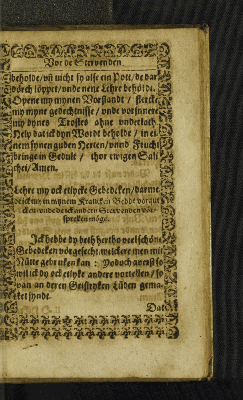 Vor de Stervenden.
beholde/ vn̄ nicht sy alse ein Pott/ de dar
dörch löppet/ vnde nene Lehre beholdt.
Opene my mynen Vorstandt/ stercke
my myne gedechtnisse/ vnde vorinnere
my dynes Trostes ahne vnderlath.
Help dat ick dyn Wordt beholde/ in ei-
nem fynen guden Herten/ vnnd Frucht
bringe in Gedult/ thor ewigen Sali-
cheit/ Amen.
Lehre my ock etlycke Gebedeken/ darmit
ick in mynem Krancken Bedde
vnde ock andern Stervenden vör-
spreken möge.
Ick hebbe dy beth hertho veel schöne
Gebedeken vörgesecht/ welckere men mit
Nütte gebruken kan: Ydoch averst so
wil ick dy ock etlyke andere vortellen/ so
van anderen Geistlyken Lüden gema-
ket synde.
Dat